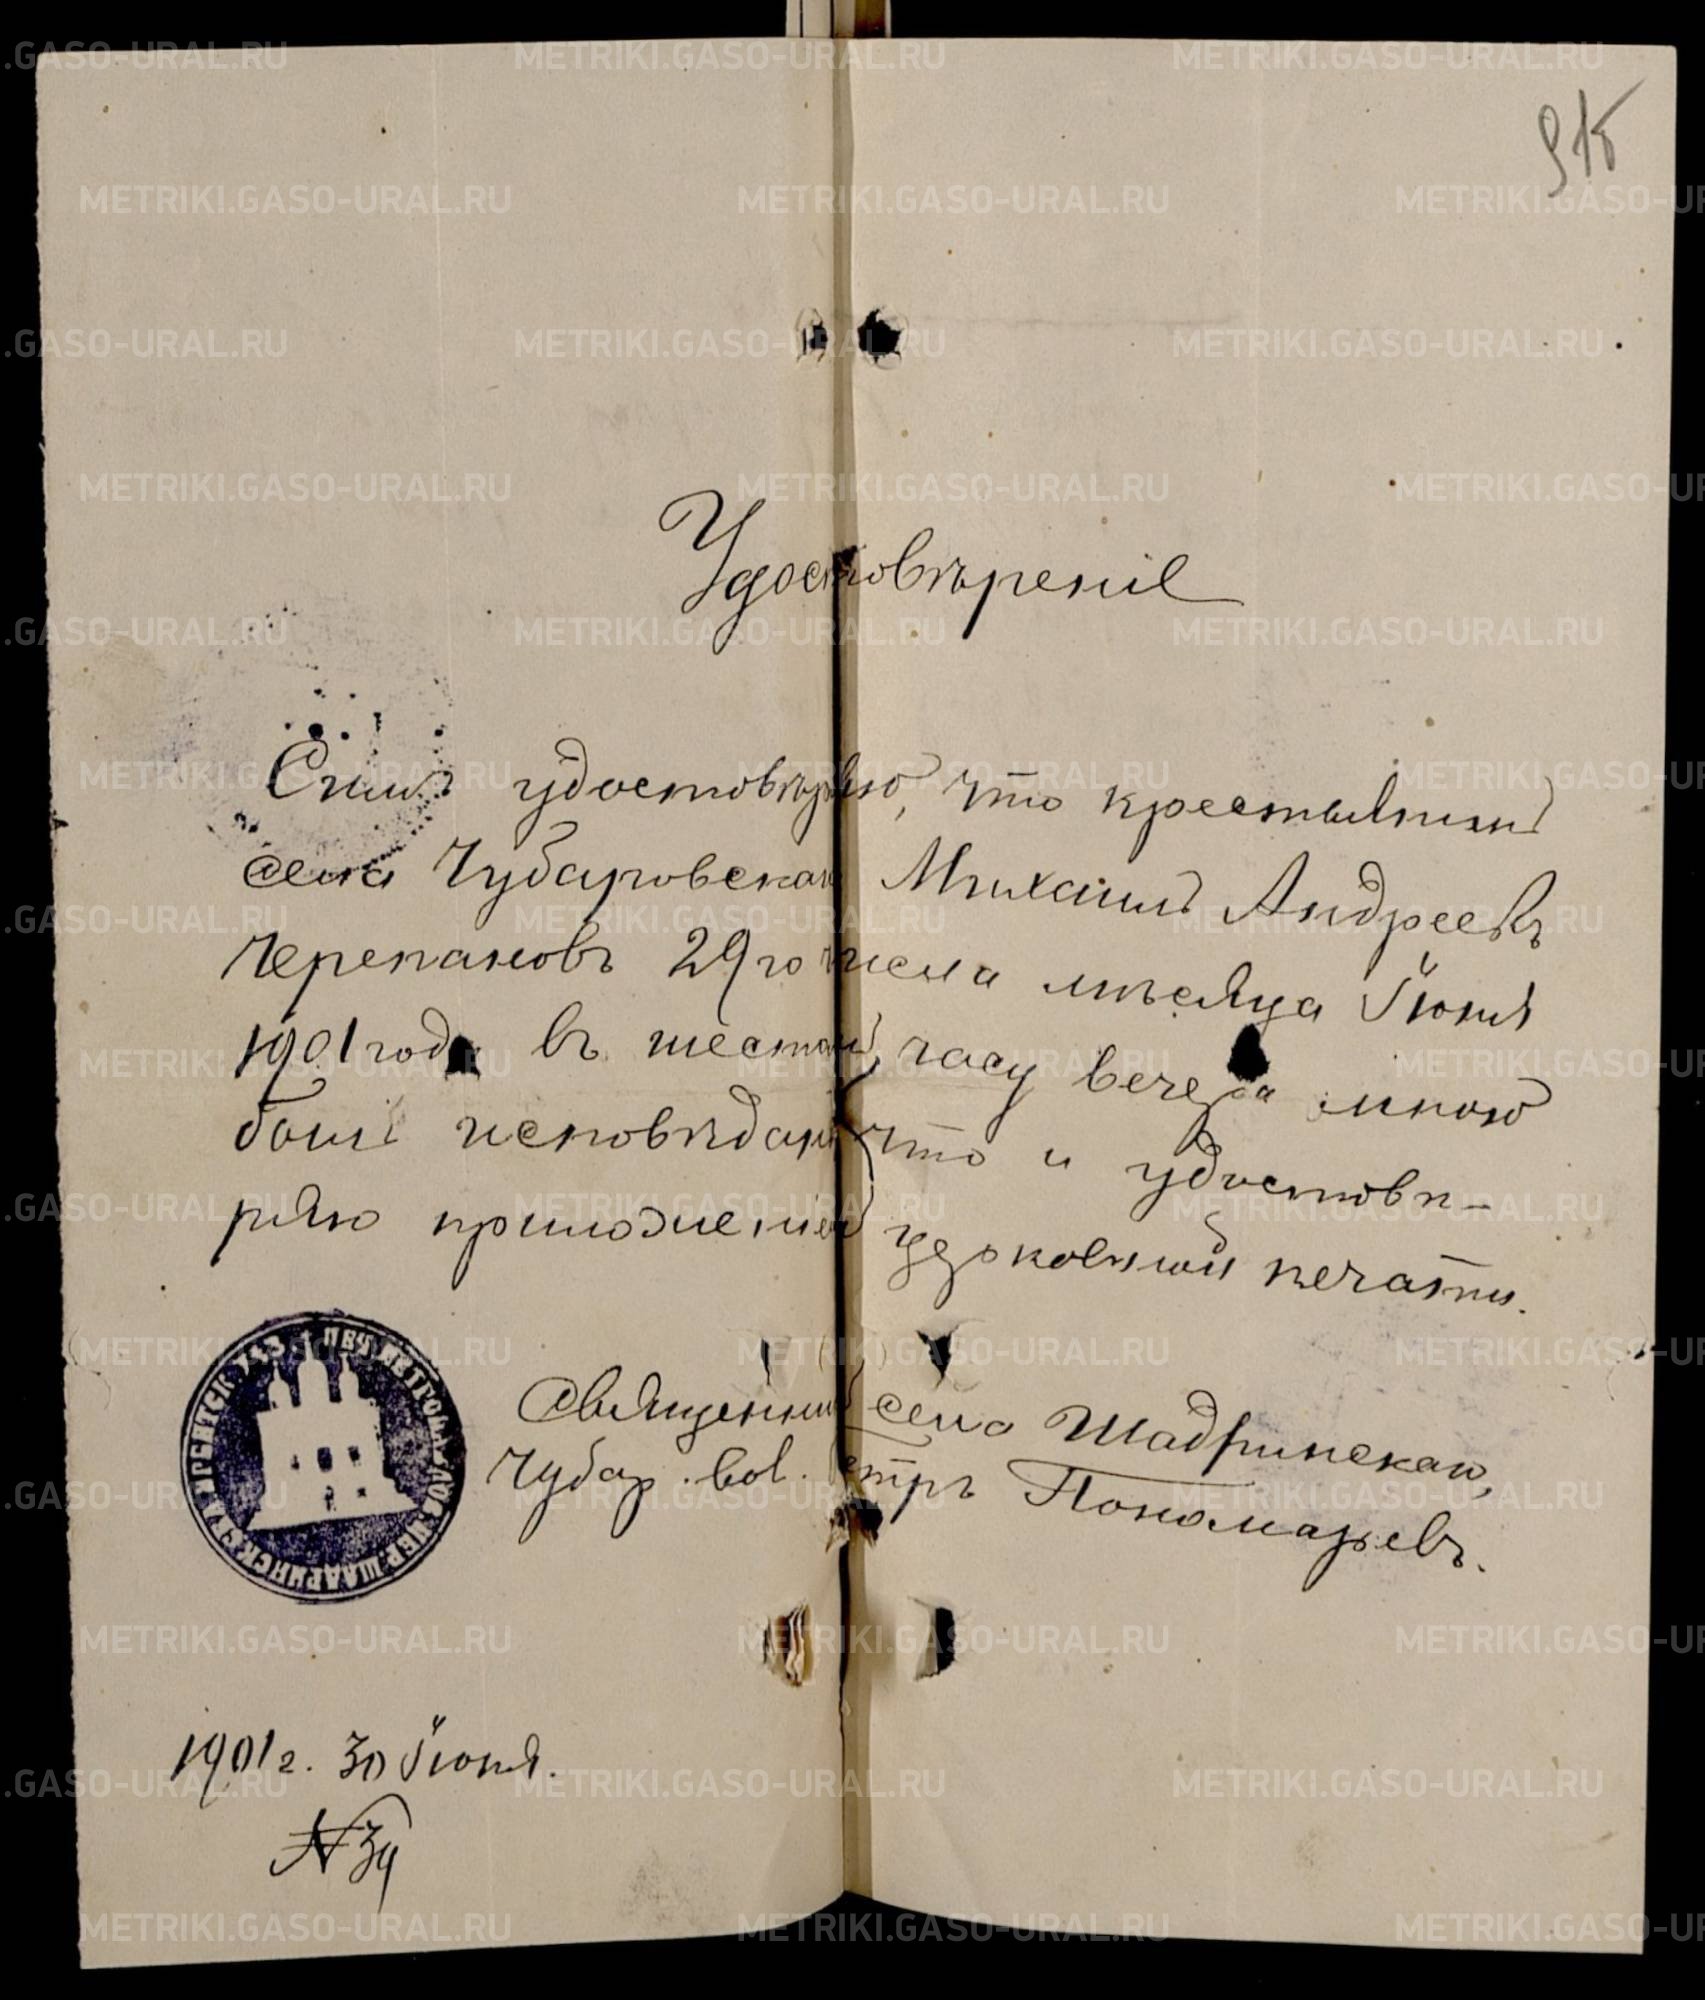 915
Удостовѣреніе
Симъ удостовѣряю, что крестьянинъ
села Чубаровскаго Михаилъ Андреевъ
Черепановъ 29го числа мѣсяца Іюня
1901 года въ шестомъ часу вечера мною
былъ исповѣданъ что и удостовѣ-
ряю приложеніемъ церковной печати.
Священникъ села Шадринскаго,
Чубар. вол. Петръ Пономаревъ.
1901 г. 30 Іюня.
№ 34
METRIKI.GASO-URAL.RU